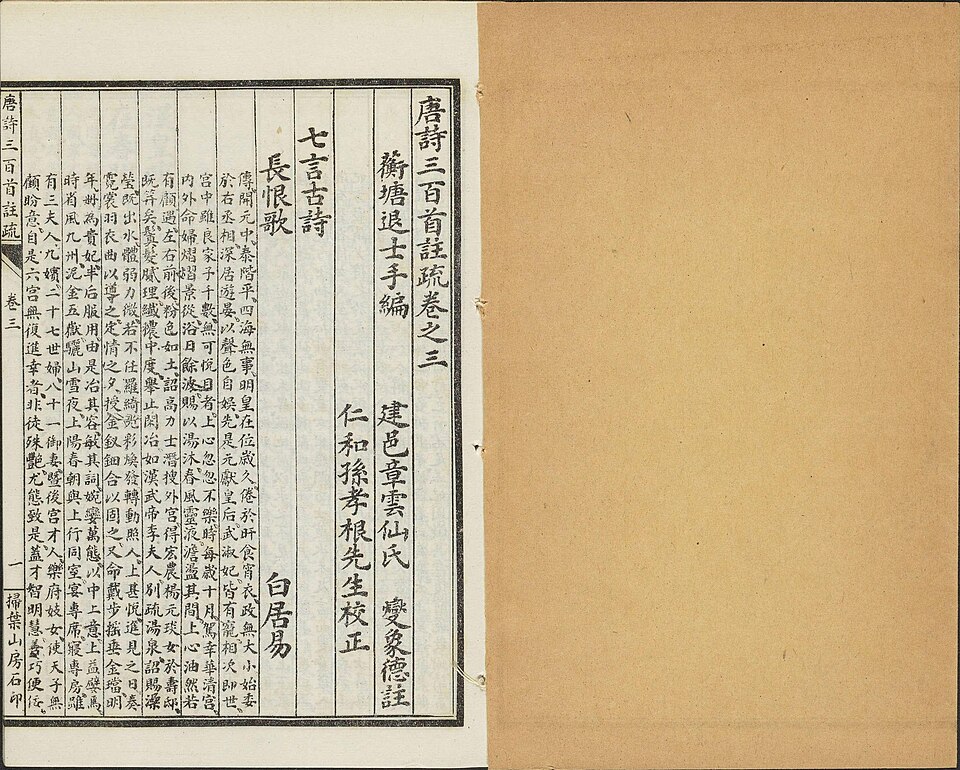 唐詩三百首註疏卷之三
蘅塘退士手編 建邑章雲仙氏 燮象德註
仁和孫孝根先生校正
七言古詩
長恨歌 白居易
傳開元中泰階平四海無事明皇在位歲久倦於旰食宵衣政無大小始委
於右丞相深居遊宴以聲色自娛先是元獻皇后武淑妃皆有寵相次即世
宮中雖良家子千數無可悅目者上心忽忽不樂時每歲十月駕幸華清宮
内外命婦熠熠景從浴日餘波賜以湯沐春風靈液澹蕩其間上心油然若
有顧遇左右前後粉色如土詔高力士潛搜外宮得宏農楊元琰女於壽邸
既笄矣鬒髮膩理纖穠中度舉止閑冶如漢武帝李夫人別疏湯泉詔賜澡
瑩既出水體弱力微若不任羅綺光彩煥發轉動照人上甚悅進見之日奏
霓裳羽衣曲以導之定情之夕授金釵鈿合以固之又命戴步搖垂金璫明
年冊為貴妃半后服用由是冶其容敏其詞婉孌萬態以中上意上益嬖焉
時省風九州泥金五嶽驪山雪夜上陽春朝與上行同室宴專席寢專房雖
有三夫人九嬪二十七世婦八十一御妻暨後宮才人樂府妓女使天子無
顧盼意自是六宮無復進幸者非徒殊艷尤態致是蓋才智明慧善巧便佞
唐詩三百首註疏 卷三 一 掃葉山房石印